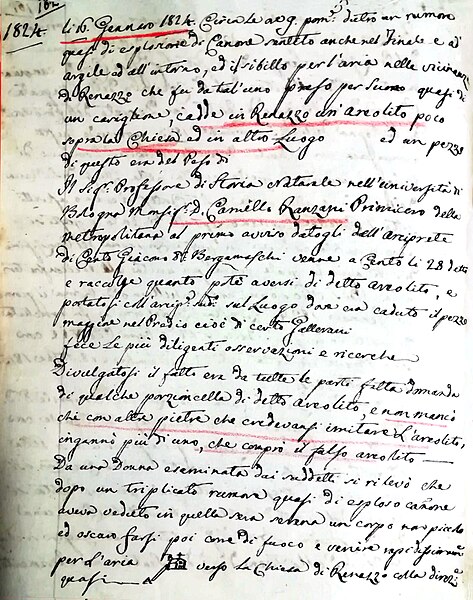 162
1824. li 16 Gennaro 1824. Circa le ore 9. pom.e dietro un rumore
quasi di esplosione di Canone sentito anche nel Finale e ad
argile ed all'intorno, ed il sibillo per l'aria nelle vicinanze
di Renazzo che fu da tal'uno preso per suono quasi di
un cariglione, cadde in Renazzo un' Areolito poco
sopra la Chiesa ed in altro Luogo ed un pezzo
di questo era del Peso di
Il Sig.r Professore di Storia Naturale nell'università di
Bologna Monsig.r D. Camillo Ranzani Primicero della
metropolitana al primo avviso datogli dell'Arciprete
di Cento Giacomo Bergamaschi venne a Cento li 28 detto
e raccolse quanto potè aversi di detto areolito, e
portatosi coll'arcip.e sud. sul Luogo dove era caduto il pezzo
maggiore nel Predio cioè di certo Gallerani
fece le più diligenti osservazioni e ricerche
Divulgatosi il fatto era da tutte le parti fatta domanda
di qualche porzioncella di detto Areolito, e non mancò
chi con altre pietre che credevansi imitare L'areolito,
ingannò più di uno, che comprò il falso areolito
Da una Donna esaminata dai suddetti si rilevò che
dopo un triplicato rumore quasi di esploso canone
aveva veduto in quella sera serena un corpo non piccolo
ed oscuro farsi poi come di fuoco e venire
per l'aria verso la Chiesa di Renazzo colla direz.e
quasi a